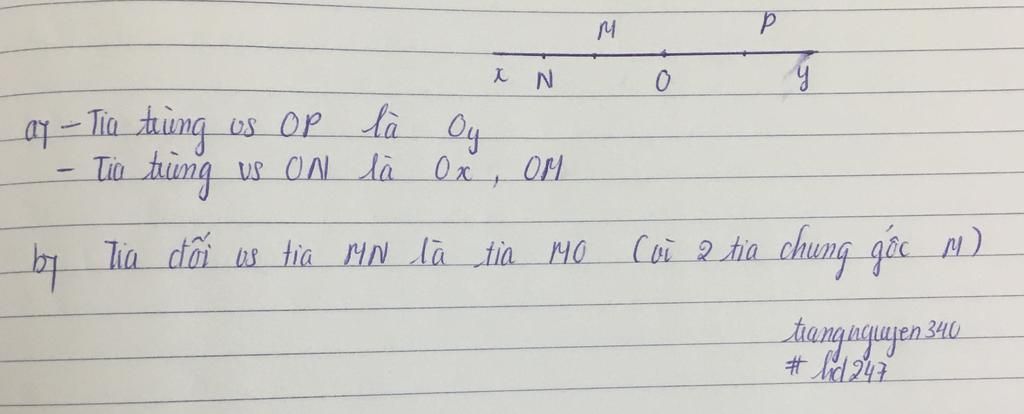 M P
x N O y
a) - Tia trùng vs OP là Oy
- Tia trùng vs ON là Ox, OM
b) Tia đối vs tia MN là tia MO (vì 2 tia chung gốc M)
trangnguyen340
# hd247